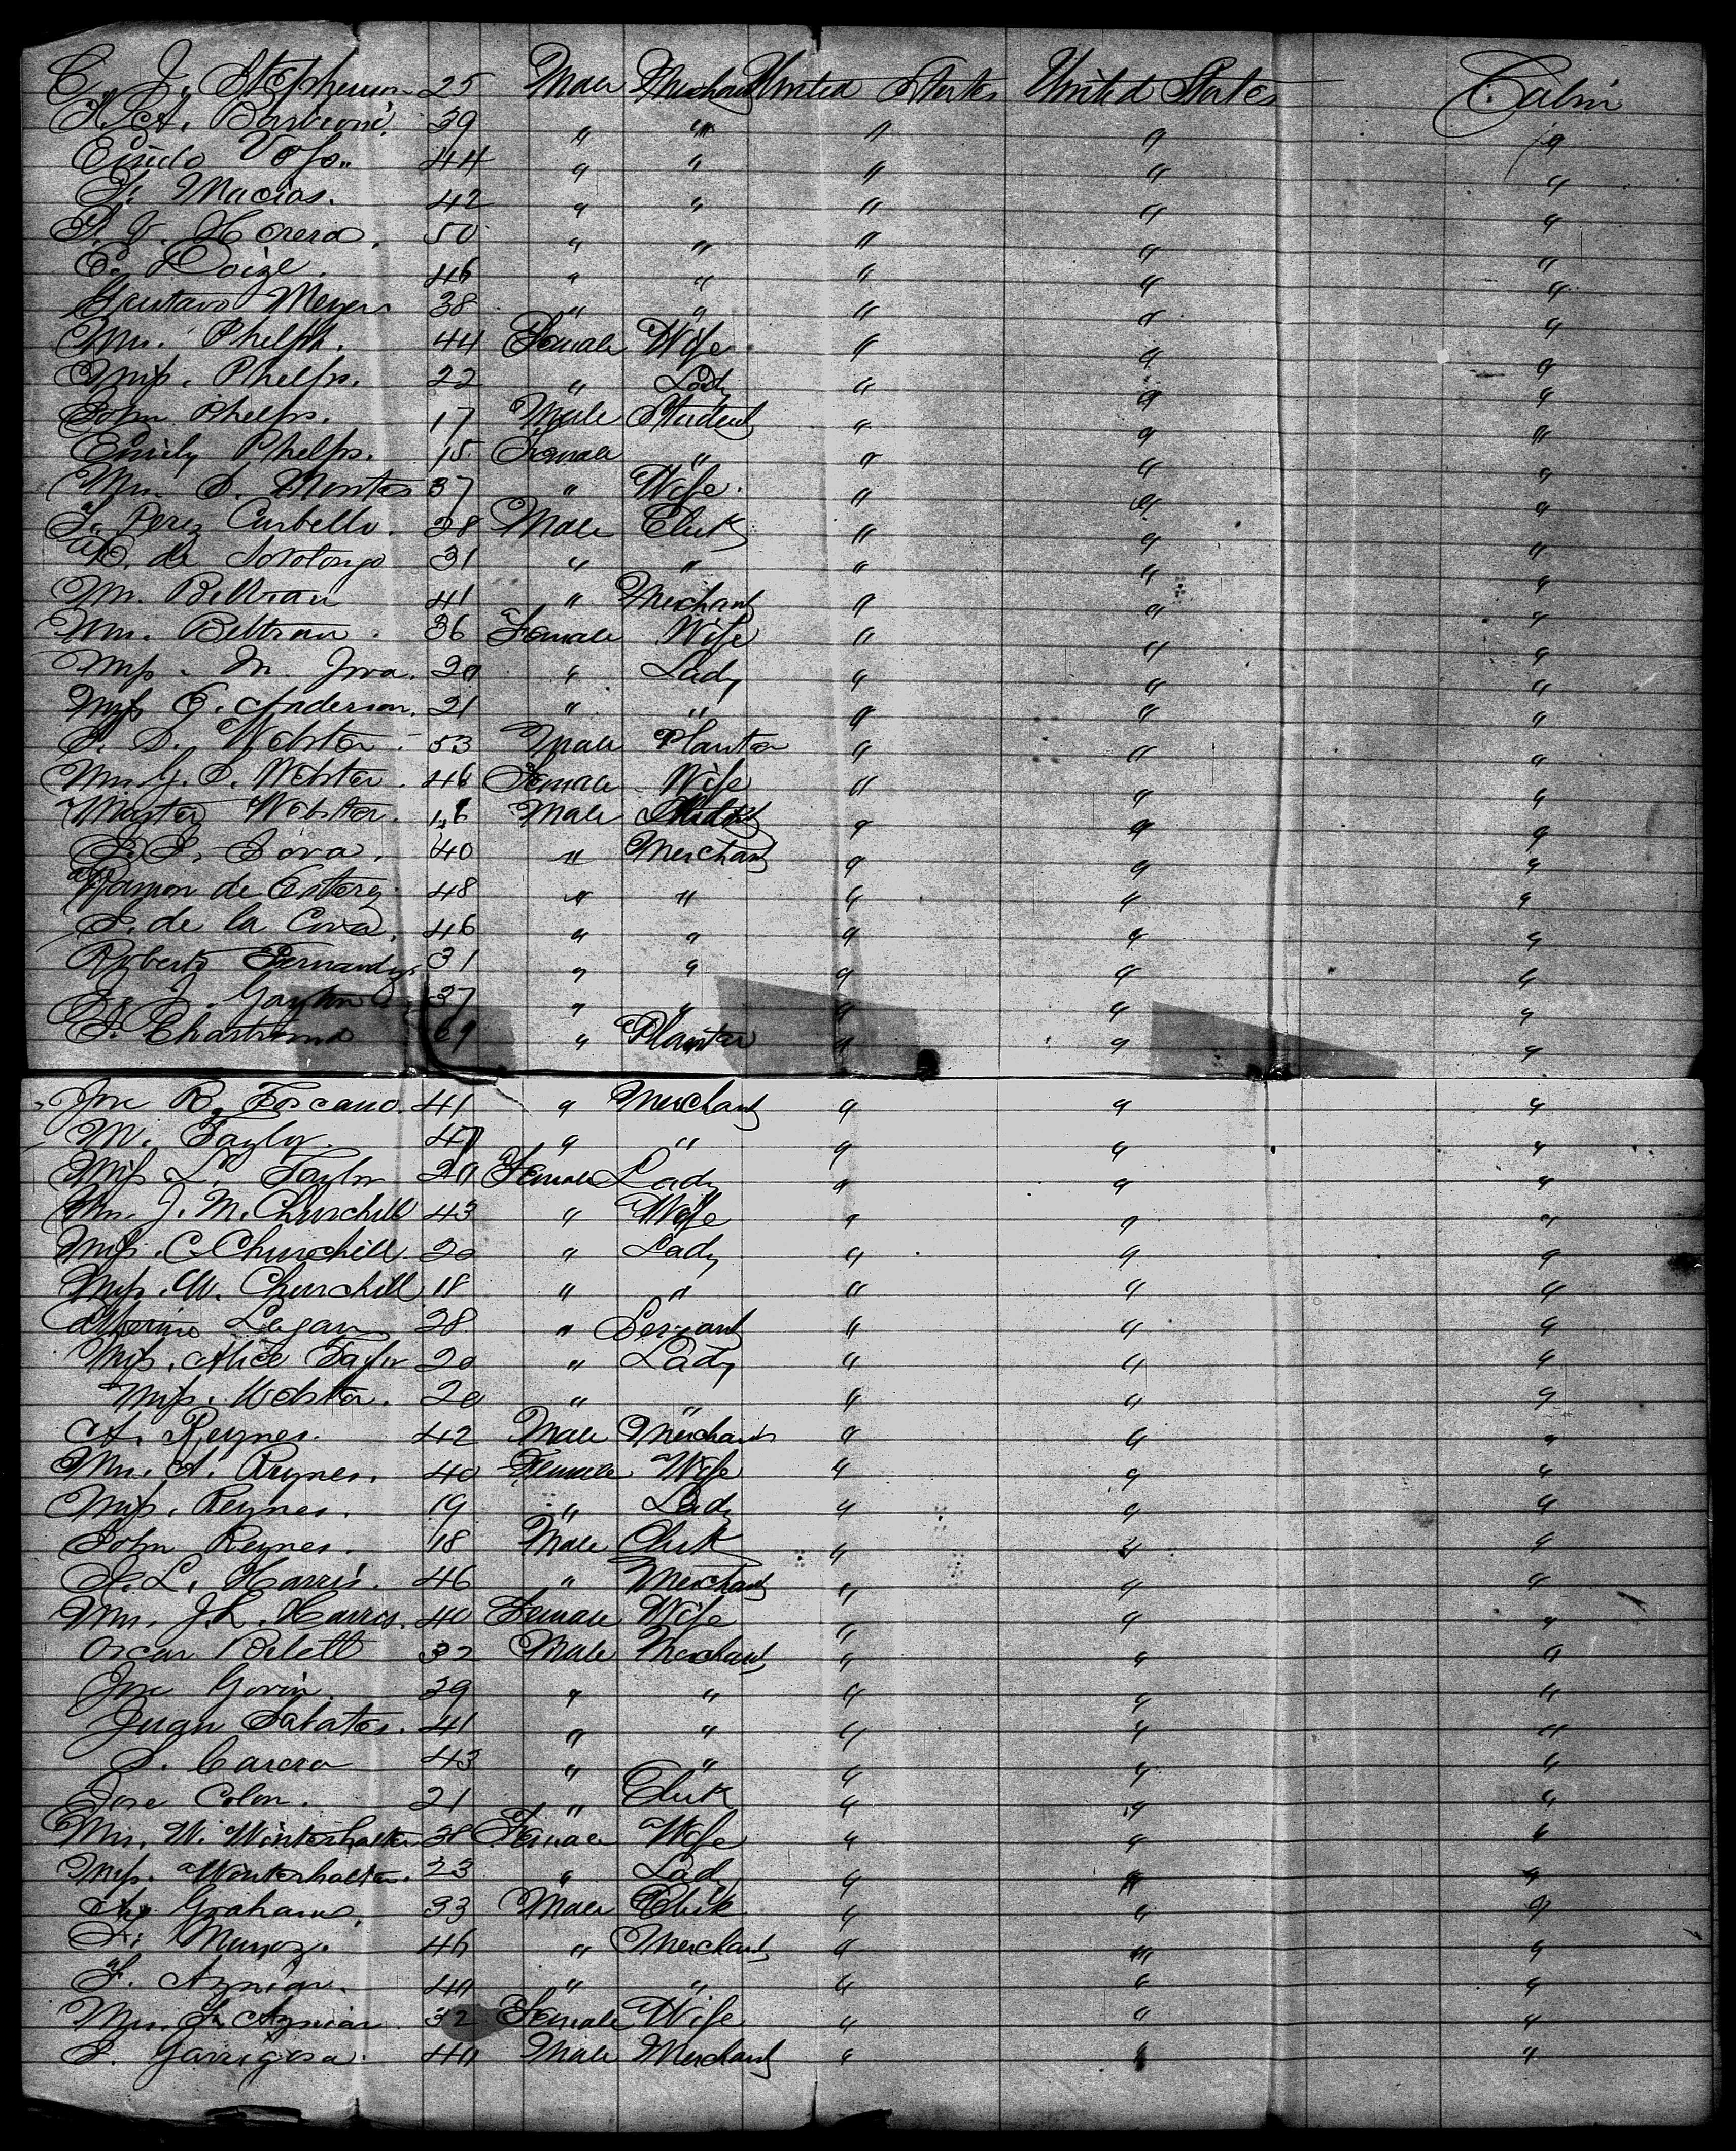 C. J. Stephenson 25 Male Merchant United States United States Cabin
F. A. Barbioni. 39 " " " " "
Emilo Vofs.. 44 " " " " "
F. Macias. 42 " " " " "
50 " " " " "
E. Doize. 46 " " " " "
Gustavo Meyer 38 " " " " "
Mrs. Phelps. 44 Female Wife " " "
Miss. Phelps. 22 " Lady " " "
John Phelps. 17 Male Student " " "
Emily Phelps. 15 Female " " " "
Mrs. S. Montes 37 " Wife. " " "
F. Perez Carbello. 28 Male Clerk " " "
de Sotolongo 31 " " " " "
M. Beltran 41 " Merchant " " "
Mrs. Beltran. 36 Female Wife " " "
Miss. M. Jova. 20 " Lady " " "
Miss E. Anderson. 21 " " " " "
S. S. Webster. 53 Male Planter " " "
Mrs. G. S. Webster. 46 Female Wife " " "
Master Webster. 16 Male Student " " "
S. S. Jova. 40 " Merchant " " "
Ramon de Esterez 48 " " " " "
S. de la Cova. 46 " " " " "
Roberto Fernandez 31 " " " " "
Gaylon 37 " " " " "
S. Chartrand 69 " Planter " " "
Jose R. Toscano. 41 " Merchant " " "
M. Taylor. 47 " " " " "
Miss L. Taylor 20 Female Lady " " "
Mrs. J. M. Churchill 43 " Wife " " "
Miss. C. Churchill. 20 " Lady " " "
Miss. W. Churchill 18 " " " " "
Legan 28 " Servant " " "
Miss. Alice Taylor 20 " Lady " " "
Miss. Webster. 20 " " " " "
A. Reynes. 42 Male Merchant " " "
Mrs. A. Reynes. 40 Female Wife " " "
Miss. Reynes. 19 " Lady " " "
John Reynes. 18 Male Clerk " " "
J. L. Harris. 46 " Merchant " " "
Mrs. J. L. Harris. 40 Female Wife " " "
Oscar Belett 32 Male Merchant " " "
Jose Govin. 39 " " " " "
Juan Sabates. 41 " " " " "
S. Carera 43 " " " " "
Jose Colon. 21 " Clerk " " "
Mrs. W. Winterhalter. 38 Female Wife " " "
Miss. Winterhalter. 23 " Lady " " "
Graham. 33 Male Clerk " " "
Munoz. 46 " Merchant " " "
F. Aguiar. 40 " " " " "
Mrs. F. Aguiar. 32 Female Wife " " "
S. Garrigosa. 40 Male Merchant " " "